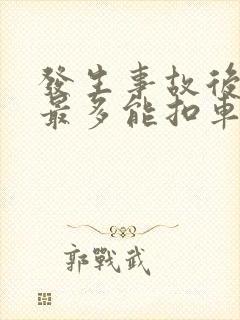 發生事故後
最多能扣車
郭戰武